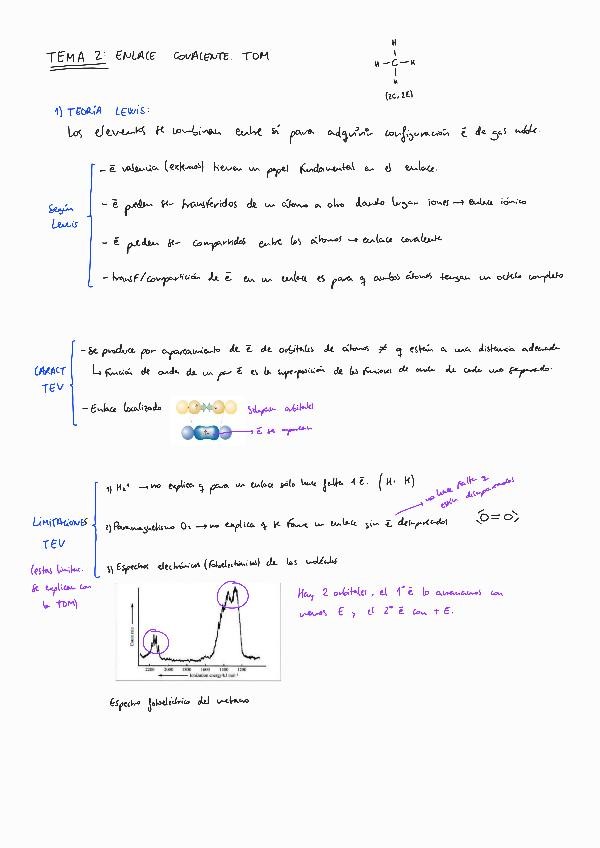 TEMA 2: ENLACE COVALENTE. TOM
H
H - C - H
H
(2c, 2e)
1) TEORÍA LEWIS:
Los elementos se combinan entre sí para adquirir configuración ē de gas noble.
Según
Lewis
- ē valencia (externos) tienen un papel fundamental en el enlace.
- ē pueden ser transferidos de un átomo a otro dando lugar iones → enlace iónico
- ē pueden ser compartidos entre los átomos → enlace covalente
- transf/compartición de ē en un enlace es para q ambos átomos tengan un octeto completo
CARACT
TEV
- Se produce por apareamiento de ē de orbitales de átomos ≠ q están a una distancia adecuada
↳ función de onda de un par ē es la superposición de las funciones de onda de cada uno separado.
- Enlace localizado
Solapan orbitales
ē se aparean
LIMITACIONES
TEV
(estas limitac.
se explican con
la TOM)
1) H₂⁺ → no explica q para un enlace sólo hace falta 1 ē. (H· H)
→ no hace falta q
estén desapareados
2) Paramagnetismo O₂ → no explica q se forme un enlace sin ē desapareados
O=O
3) Espectros electrónicos (fotoelectrónicos) de las moléculas
2200 2000 1800 1600 1400 1200
Ionization energy/kJ mol⁻¹
Hay 2 orbitales, el 1º ē lo arrancamos con
menos E, el 2º ē con + E.
Espectro fotoeléctrico del metano